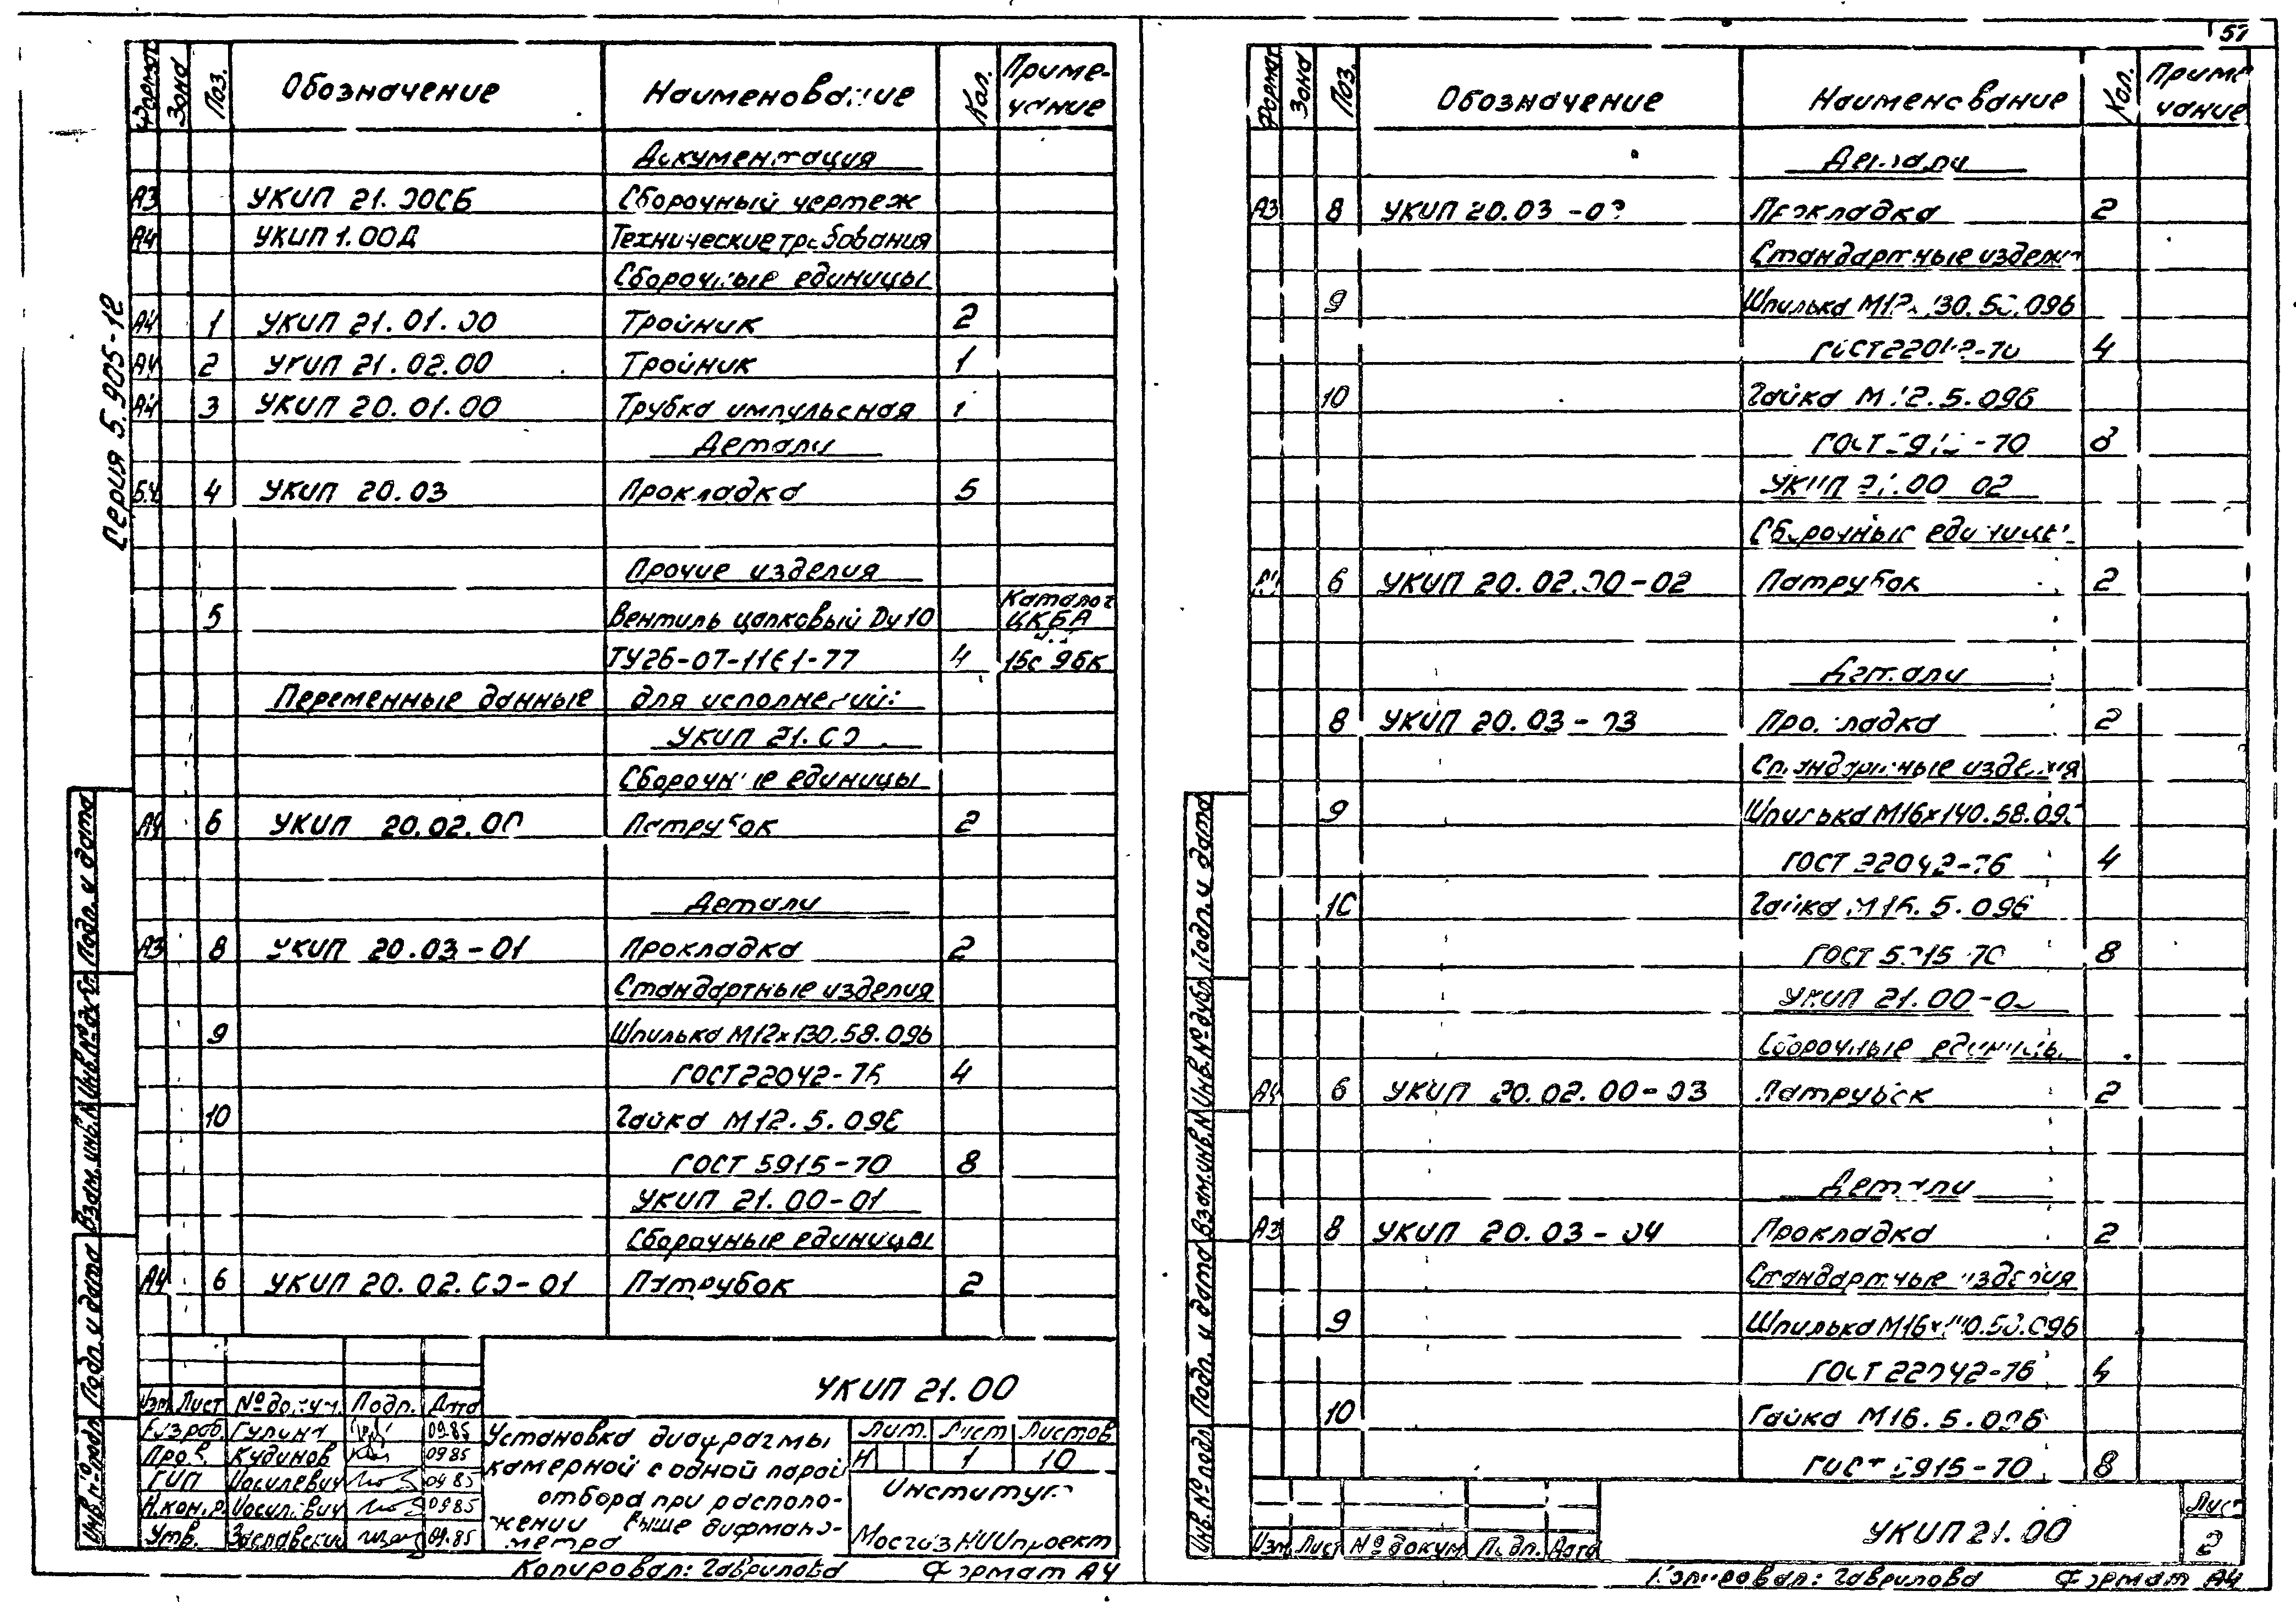 57
Серия 5.905-12
Формат Зона Поз. Обозначение Наименование Кол. Приме-
чание
Документация
А3 УКИП 21.00СБ Сборочный чертеж
А4 УКИП 1.00Д Технические требования
Сборочные единицы
А4 1 УКИП 21.01.00 Тройник 2
А4 2 УКИП 21.02.00 Тройник 1
А4 3 УКИП 20.01.00 Трубка импульсная 1
Детали
Б.Ч 4 УКИП 20.03 Прокладка 5
Прочие изделия
5 Вентиль цапковый Dу10 Каталог
ЦКБА
ТУ26-07-1161-77 4 15с 9бк
Переменные данные для исполнений:
УКИП 21.00
Сборочные единицы
А4 6 УКИП 20.02.00 Патрубок 2
Детали
А3 8 УКИП 20.03-01 Прокладка 2
Стандартные изделия
9 Шпилька М12х130.58.096
ГОСТ 22042-76 4
10 Гайка М12.5.096
ГОСТ 5915-70 8
УКИП 21.00-01
Сборочные единицы
А4 6 УКИП 20.02.00-01 Патрубок 2
Инв.№подл. Подп. и дата Взам.инв.№ Инв.№дубл. Подп. и дата
Изм. Лист № докум. Подп. Дата
Разраб. Гулина 09.85
Пров. Кудинов 09.85
ГИП Иосилевич 09.85
Н.контр. Иосилевич 09.85
Утв. Заславский 09.85
УКИП 21.00
Установка диафрагмы
камерной с одной парой
отбора при располо-
жении выше дифмано-
метра
Лит. Лист Листов
И 1 10
Институт
МосгазНИИпроект
Копировал: Гаврилова Формат А4
Формат Зона Поз. Обозначение Наименование Кол. Приме
чание
Детали
А3 8 УКИП 20.03-02 Прокладка 2
Стандартные изделия
9 Шпилька М12х130.58.096
ГОСТ 22042-76 4
10 Гайка М12.5.096
ГОСТ 5915-70 8
УКИП 21.00-02
Сборочные единицы
А4 6 УКИП 20.02.00-02 Патрубок 2
Детали
8 УКИП 20.03-03 Прокладка 2
Стандартные изделия
9 Шпилька М16х140.58.096
ГОСТ 22042-76 4
10 Гайка М16.5.096
ГОСТ 5915-70 8
УКИП 21.00-03
Сборочные единицы
А4 6 УКИП 20.02.00-03 Патрубок 2
Детали
А3 8 УКИП 20.03-04 Прокладка 2
Стандартные изделия
9 Шпилька М16х140.58.096
ГОСТ 22042-76 4
10 Гайка М16.5.096
ГОСТ 5915-70 8
Инв.№подл. Подп. и дата Взам.инв.№ Инв.№дубл. Подп. и дата
Изм. Лист № докум. Подп. Дата
УКИП 21.00
Лист
2
Копировал: Гаврилова Формат А4